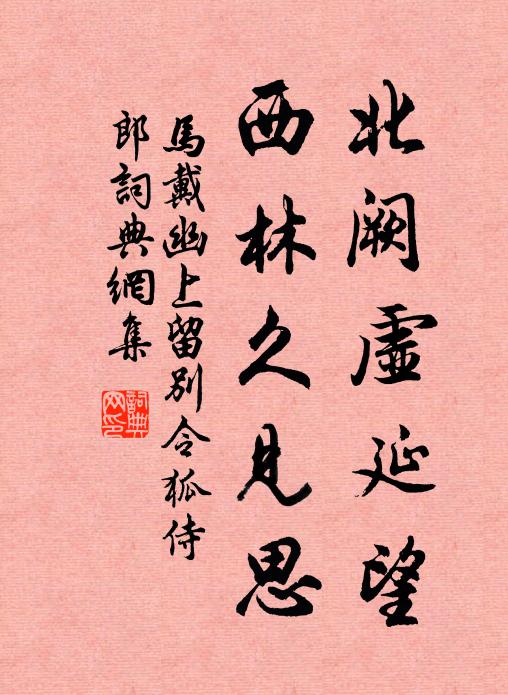 北阙虚延望
西林久见思
馬戴幽上留别令狐侍
郎詞典網集
詞典
网印